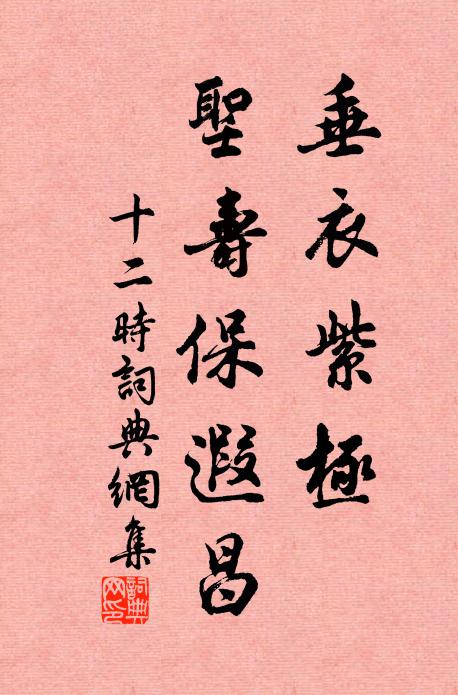 垂衣紫極
聖壽保遐昌
十二時詞典網集
詞典
网印